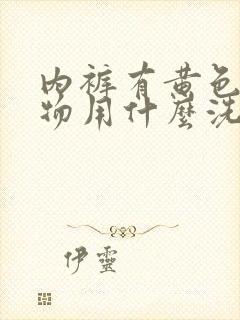 内裤有黄色
物用什麼洗
伊靈